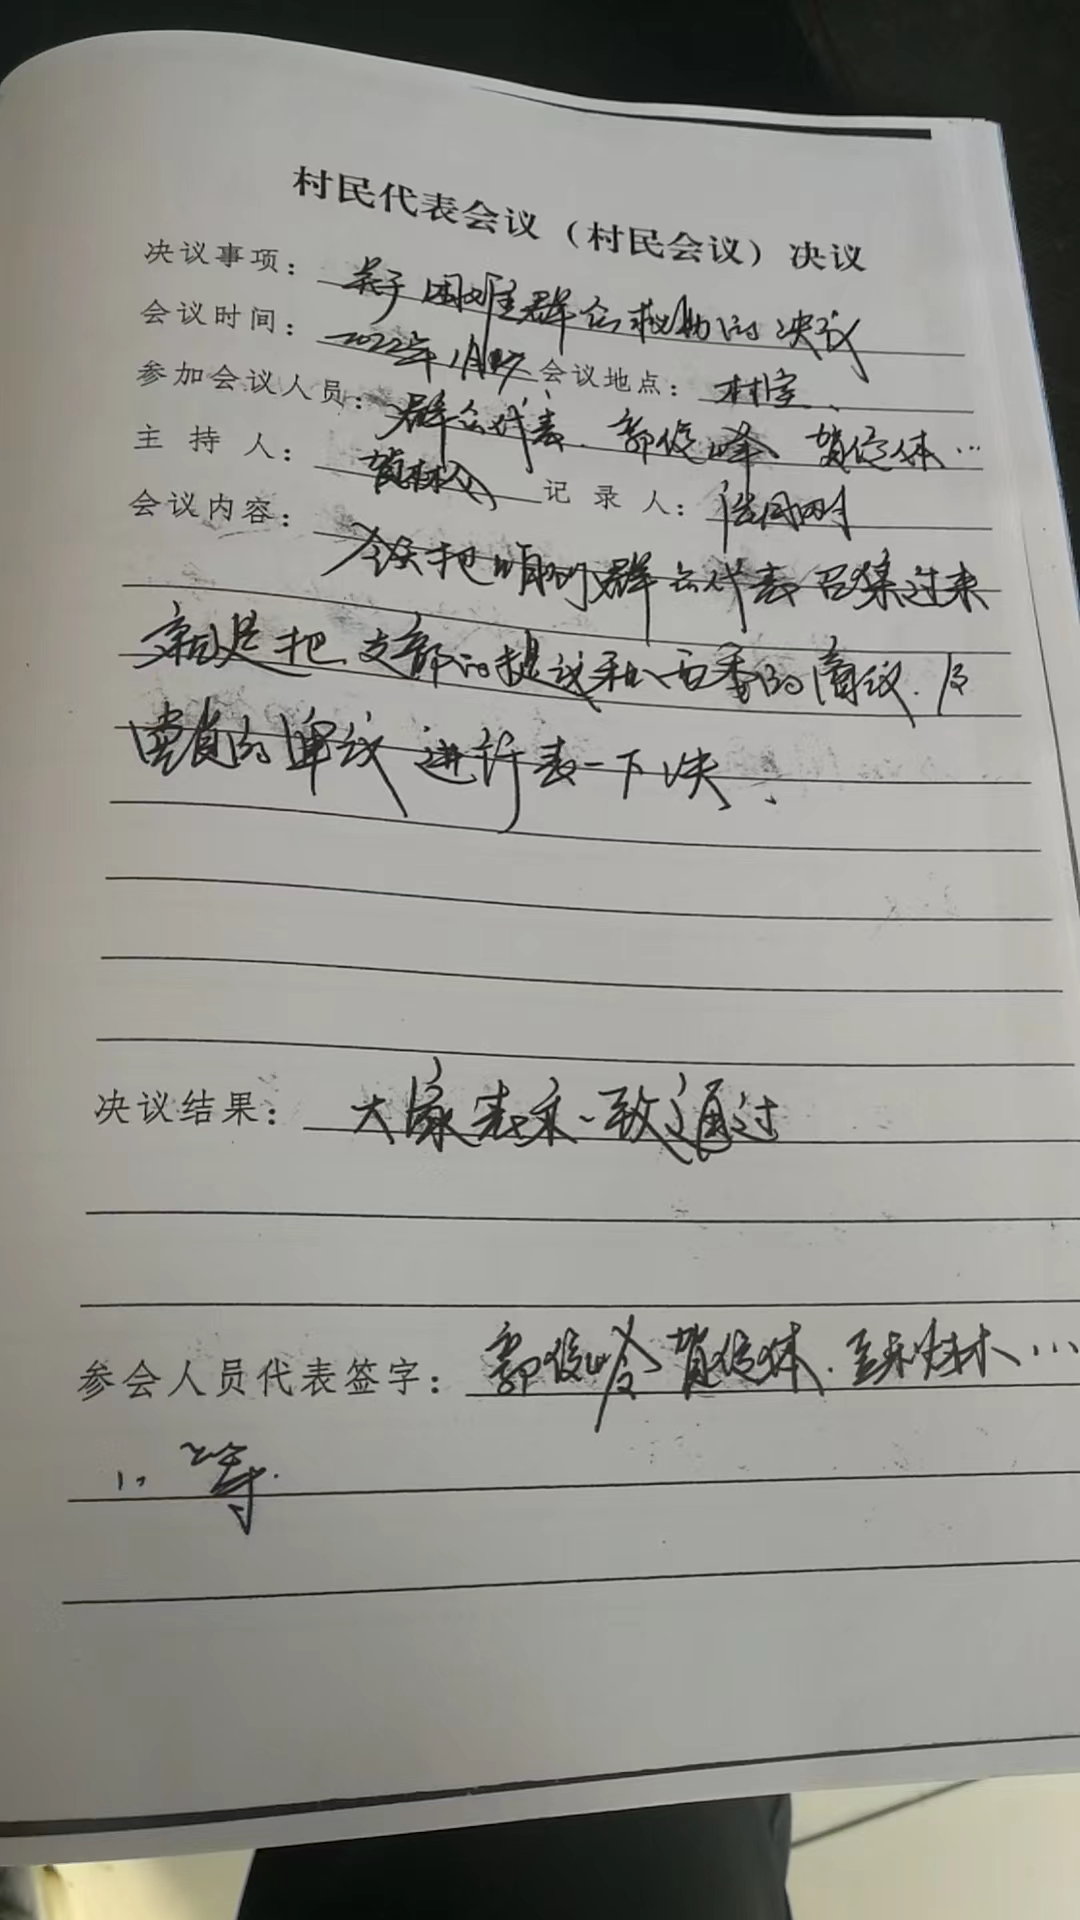 村民代表会议（村民会议）决议
决议事项： 关于困难群众救助的决议
会议时间： 2022年1月 会议地点： 村室
参加会议人员： 群众代表、郭俊峰 贺俊体…
主 持 人： 记 录 人：
会议内容： 今天把咱们群众代表召集过来
就是把支部的提议和两委的商议、及
党员的审议进行表一下决、
决议结果： 大家表示一致通过
参会人员代表签字： 郭俊岭 贺俊体、
等.